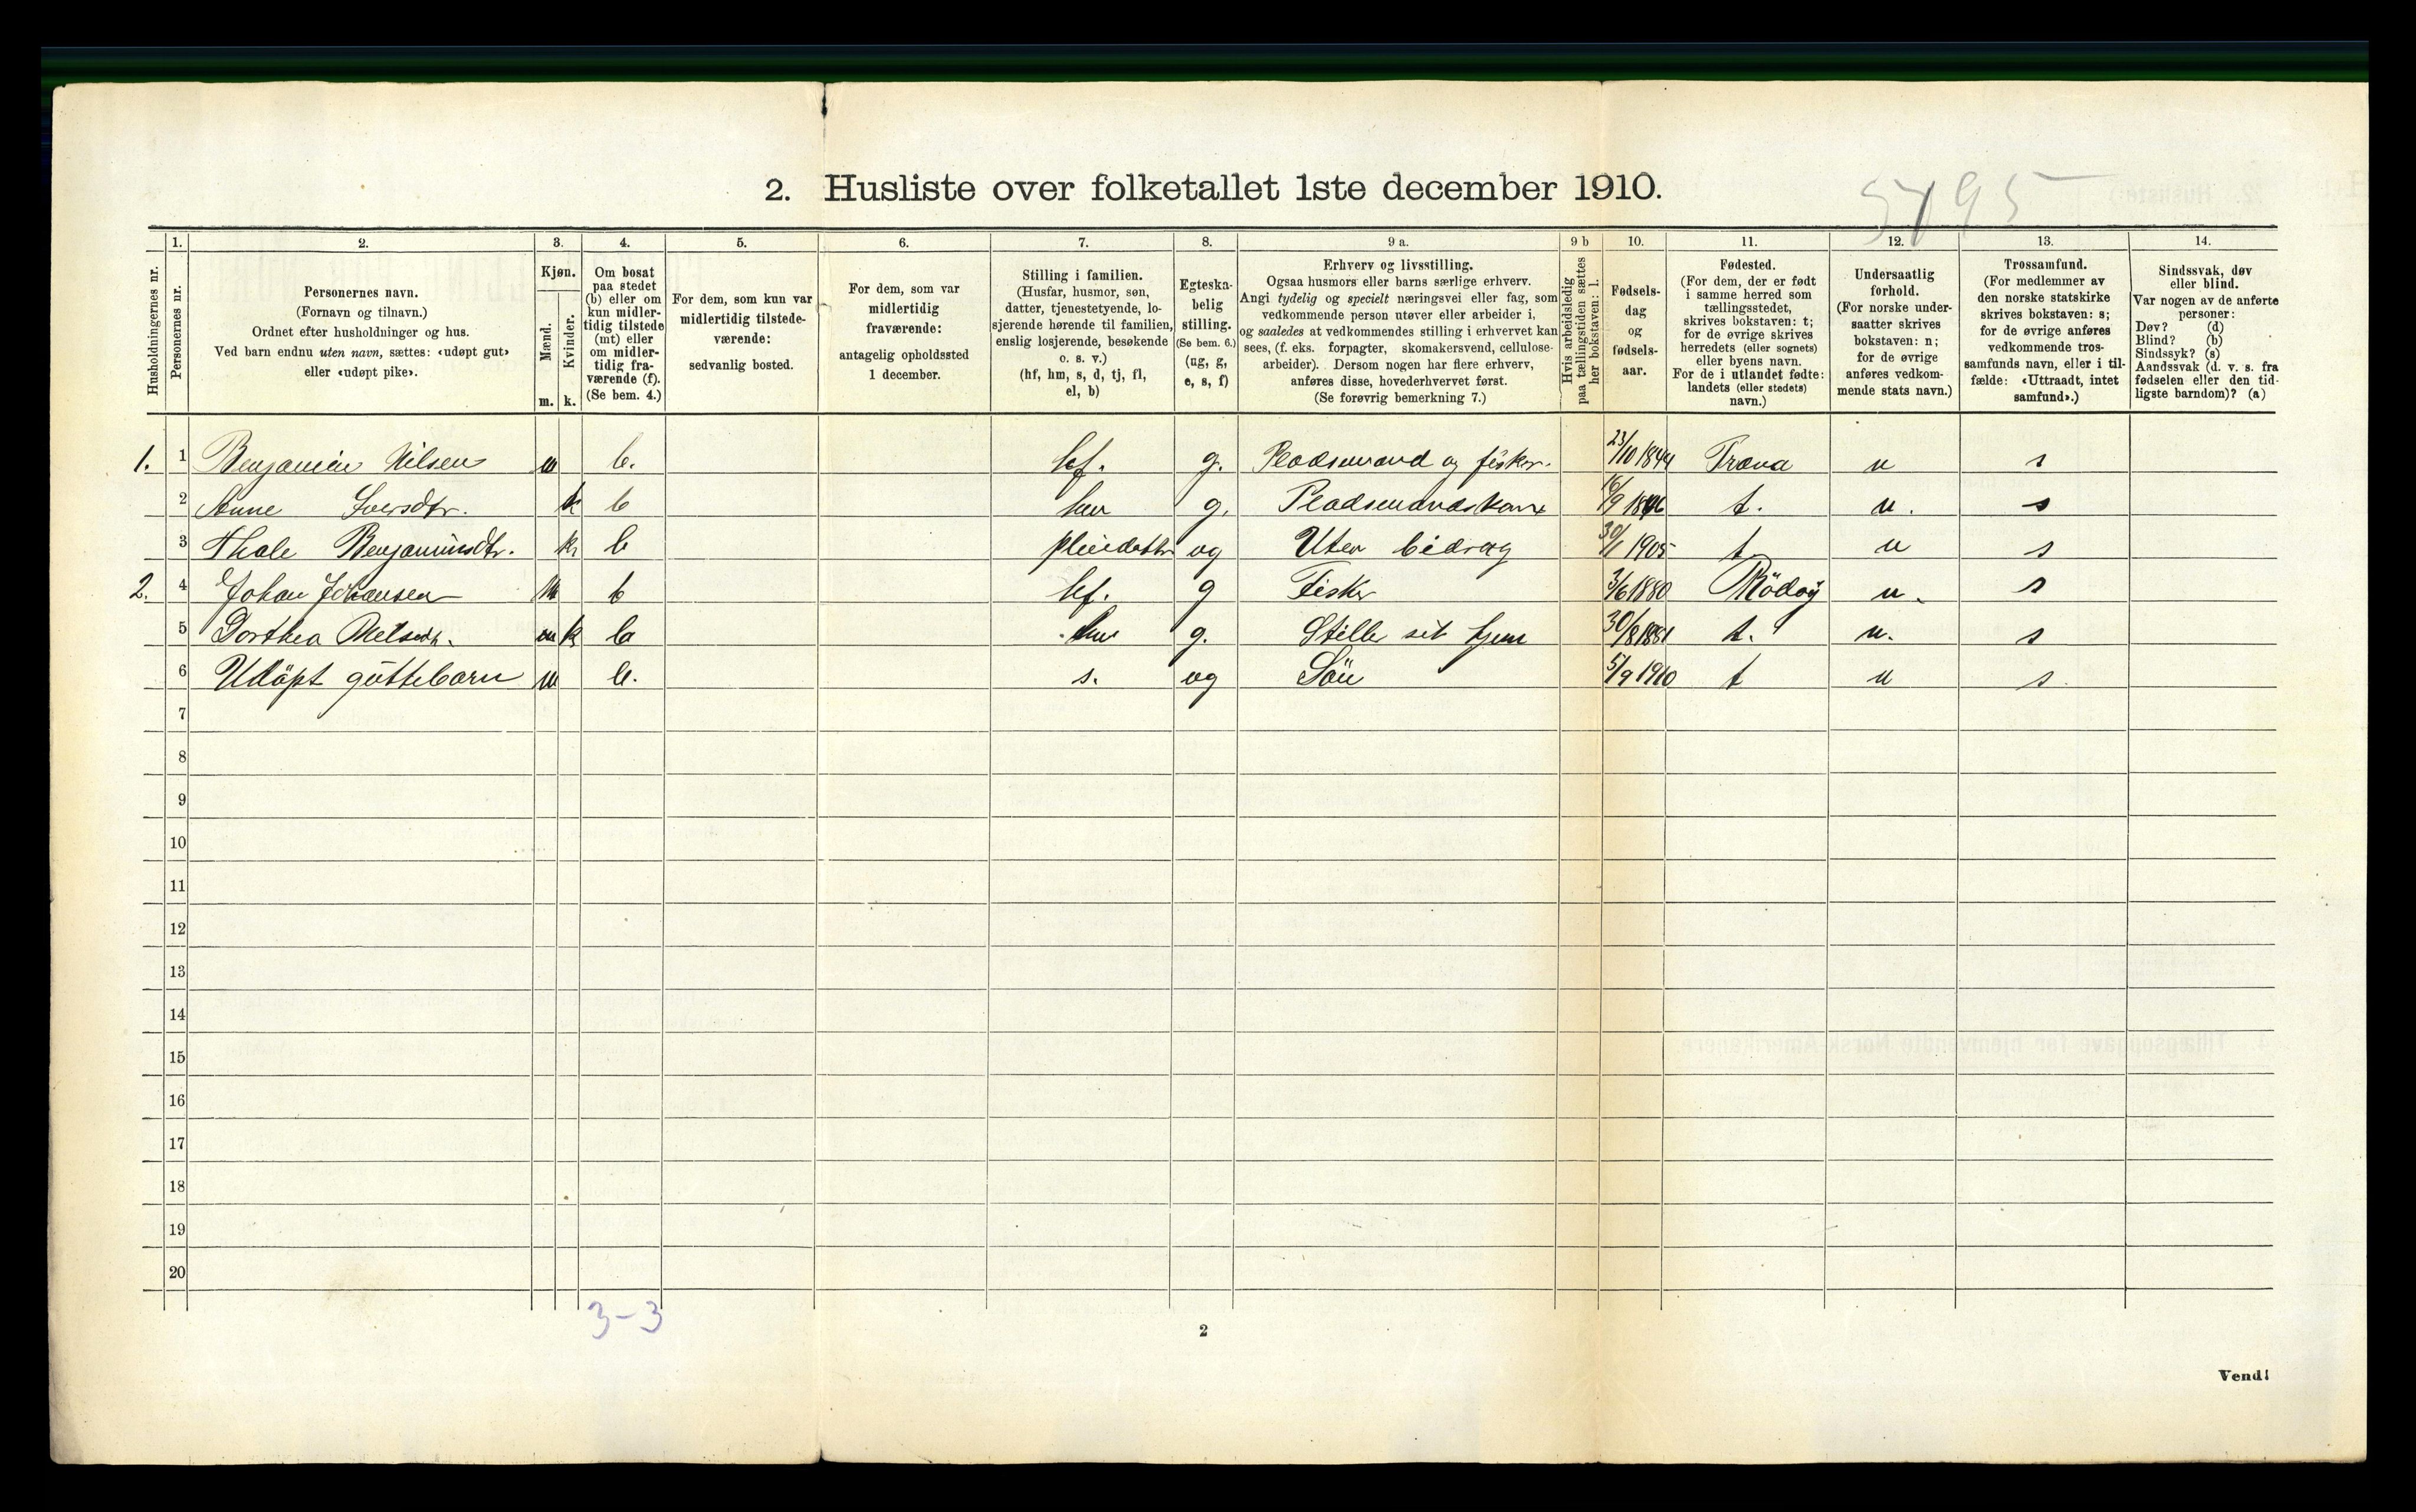 2. Husliste over folketallet 1ste december 1910.
5795
Husholdningernes nr.
1. Personernes nr.
2. Personernes navn. (Fornavn og tilnavn.) Ordnet efter husholdninger og hus. Ved barn endnu uten navn, sættes: «udøpt gut» eller «udøpt pike».
3. Kjøn. Mænd. m. Kvinder. k.
4. Om bosat paa stedet (b) eller om kun midlertidig tilstede (mt) eller om midlertidig fraværende (f). (Se bem. 4.)
5. For dem, som kun var midlertidig tilstedeværende: sedvanlig bosted.
6. For dem, som var midlertidig fraværende: antagelig opholdssted 1 december.
7. Stilling i familien. (Husfar, husmor, søn, datter, tjenestetyende, losjerende hørende til familien, enslig losjerende, besøkende o. s. v.) (hf, hm, s, d, tj, fl, el, b)
8. Egteskabelig stilling. (Se bem. 6.) (ug, g, e, s, f)
9 a. Erhverv og livsstilling. Ogsaa husmors eller barns særlige erhverv. Angi tydelig og specielt næringsvei eller fag, som vedkommende person utøver eller arbeider i, og saaledes at vedkommendes stilling i erhvervet kan sees, (f. eks. forpagter, skomakersvend, cellulosearbeider). Dersom nogen har flere erhverv, anføres disse, hovederhvervet først. (Se forøvrig bemerkning 7.)
9 b Hvis arbeidsledig paa tællingstiden sættes her bokstaven: l.
10. Fødselsdag og fødselsaar.
11. Fødested. (For dem, der er født i samme herred som tællingsstedet, skrives bokstaven: t; for de øvrige skrives herredets (eller sognets) eller byens navn. For de i utlandet fødte: landets (eller stedets) navn.)
12. Undersaatlig forhold. (For norske undersaatter skrives bokstaven: n; for de øvrige anføres vedkommende stats navn.)
13. Trossamfund. (For medlemmer av den norske statskirke skrives bokstaven: s; for de øvrige anføres vedkommende trossamfunds navn, eller i tilfælde: «Uttraadt, intet samfund».)
14. Sindssvak, døv eller blind. Var nogen av de anførte personer: Døv? (d) Blind? (b) Sindssyk? (s) Aandssvak (d. v. s. fra fødselen eller den tidligste barndom)? (a)
1. 1 Benjamin Nilsen m b. hf. g. Pladsemand og fisker. 23/10 1844 Træna n s
2 Anne Iversdtr. k b hm g. Pladsemandskone 16/9 1846 t. n. s
3 Thale Benjaminsdtr. k b pleiedatter ug Uten bidrag 30/1 1905 t n s
2. 4 Johan Johansen m b hf. g Fisker 3/6 1880 Rödöy n. s
5 Dorthea k b hm g. Stille sit hjem 30/8 1881 t. n. s
6 Udöpt guttebarn m b. s. ug Sön 5/9 1910 t n s
7
8
9
10
11
12
13
14
15
16
17
18
19
20
3-3
2
Vend!